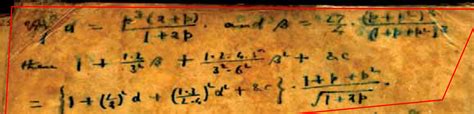 If α = p³(2+p)/(1+2p) and β = 27/4 · (p+p²)²/(1+p+p²)³
then 1 + 1·2/3² β + 1·2·4·5/3²·6² β² + &c
= {1 + (1/2)² α + (1·3/2·4)² α² + &c} · (1+p+p²)/√(1+2p)